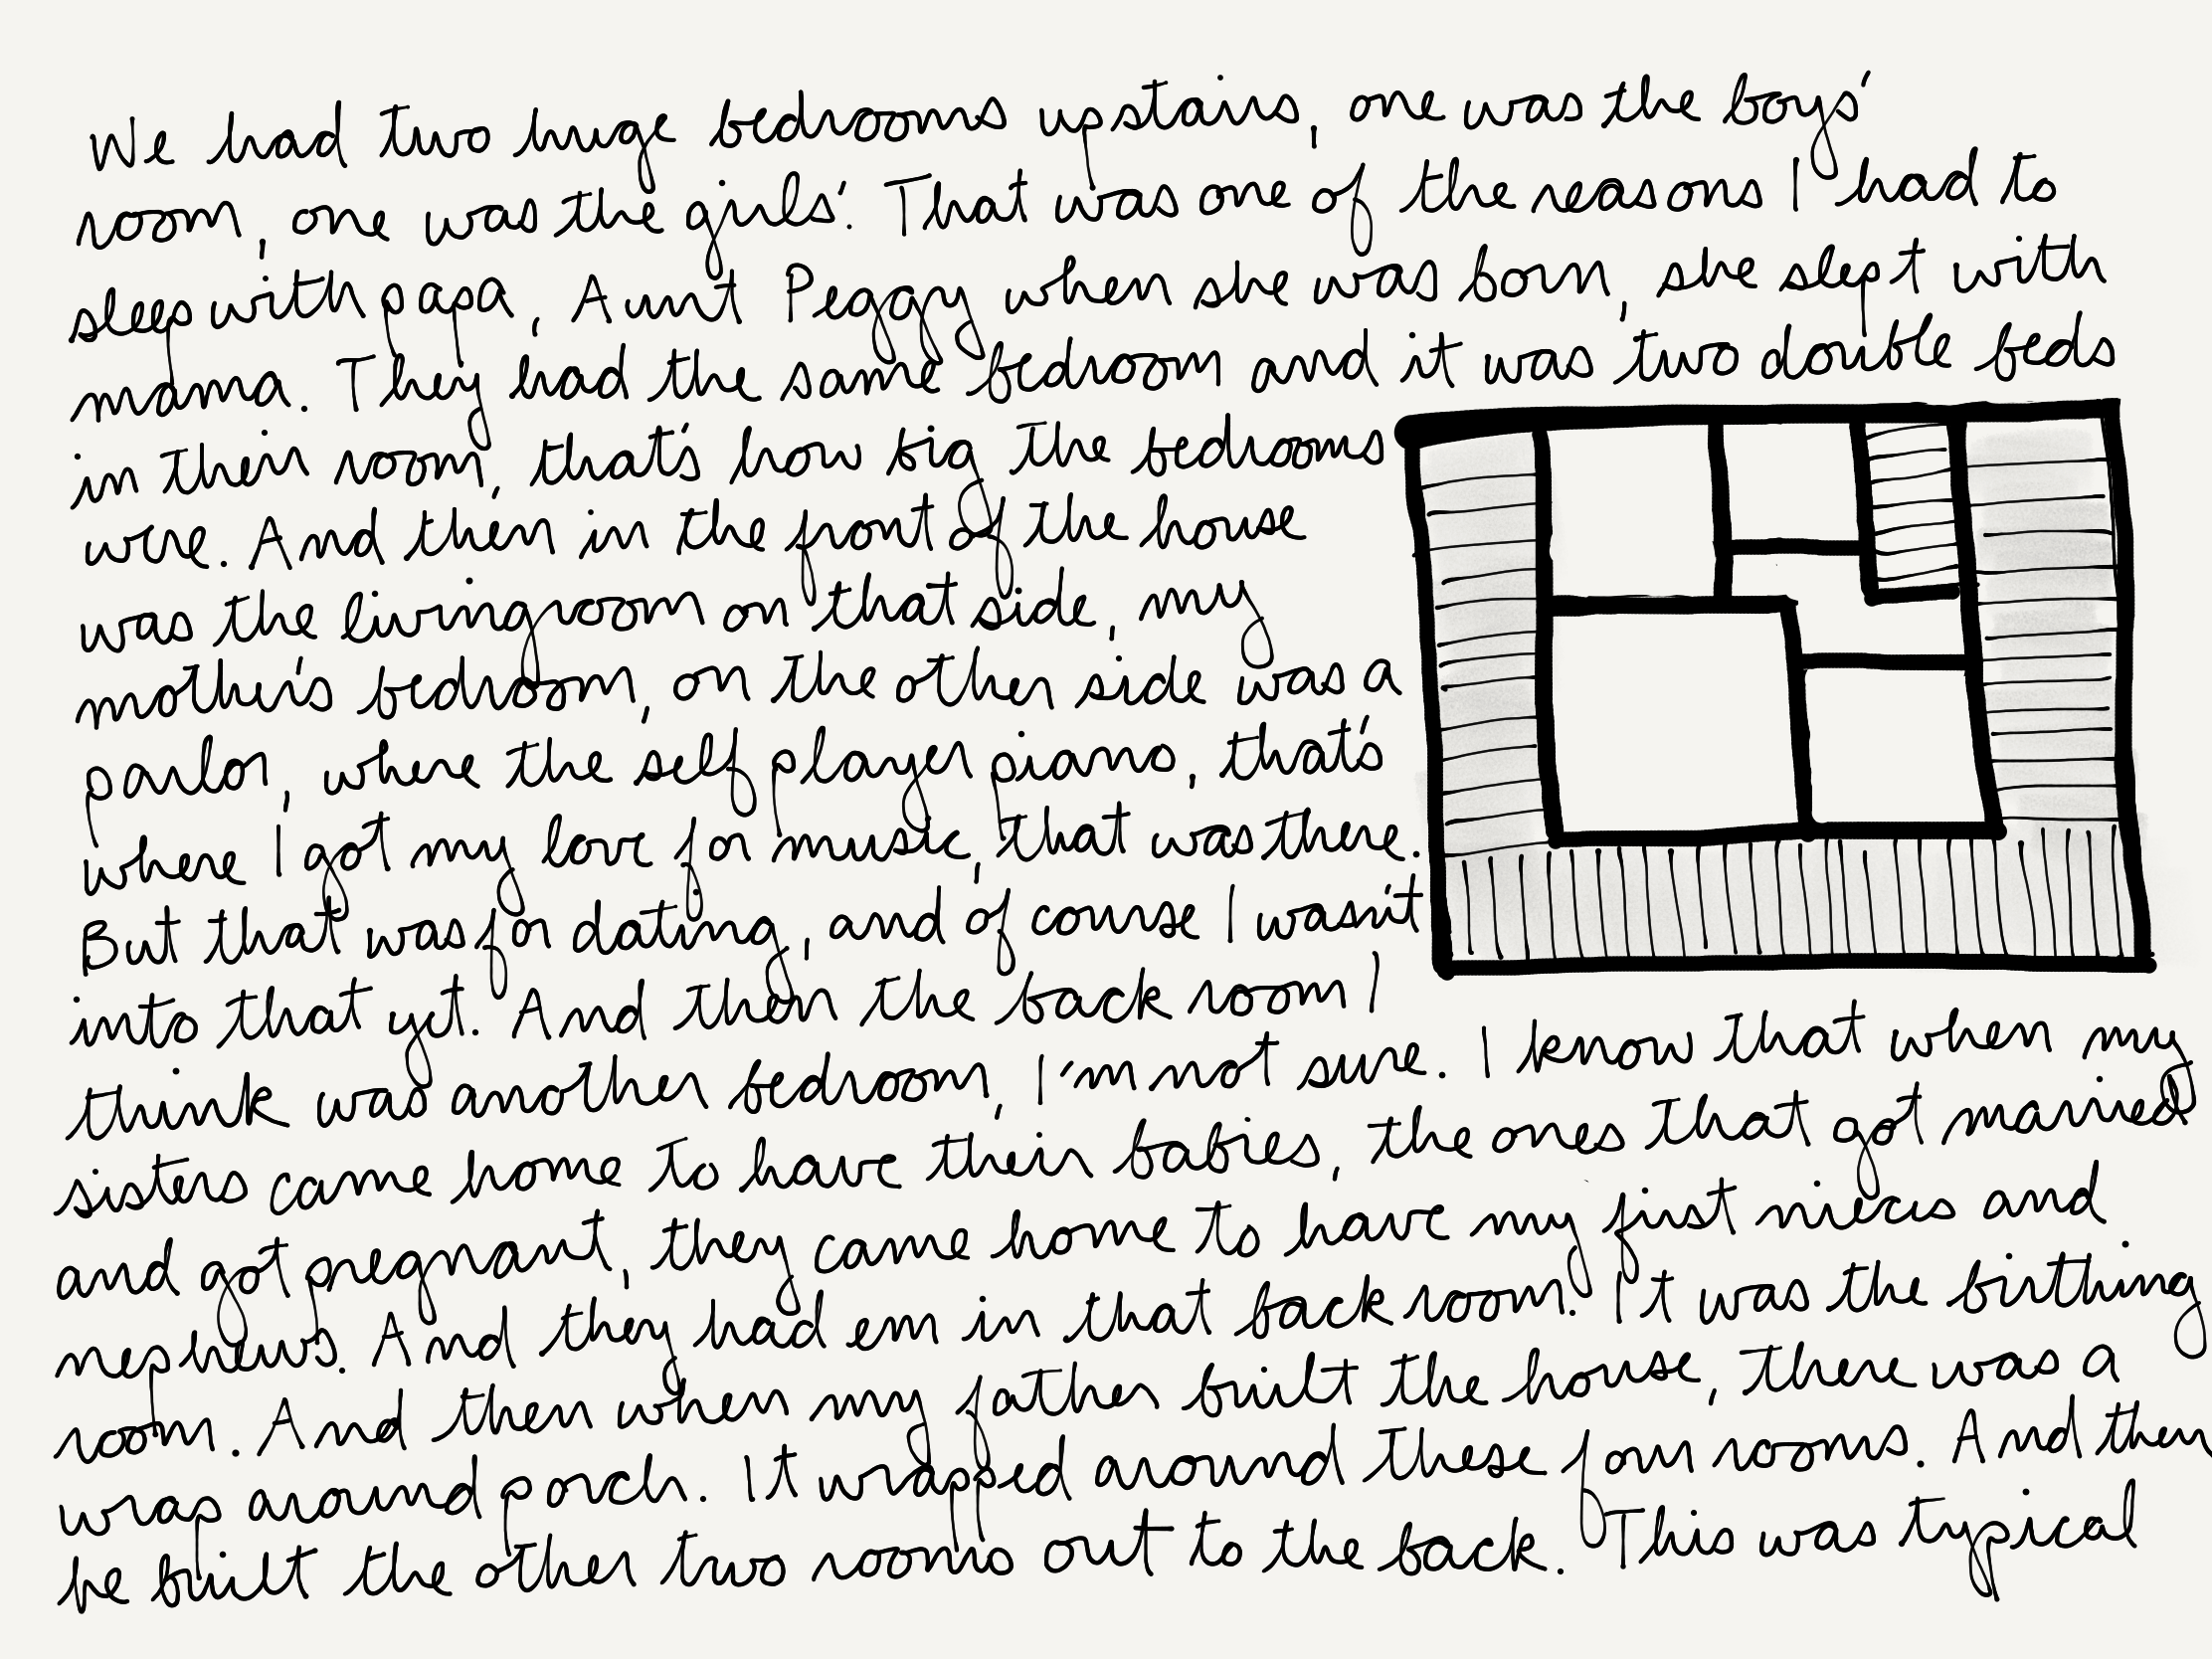 We had two huge bedrooms upstairs, one was the boys'
room, one was the girls'. That was one of the reasons I had to
sleep with papa, Aunt Peggy when she was born, she slept with
mama. They had the same bedroom and it was two double beds
in their room, that's how big the bedrooms
were. And then in the front of the house
was the livingroom on that side, my
mother's bedroom, on the other side was a
parlor, where the self player piano, that's
where I got my love for music, that was there.
But that was for dating, and of course I wasn't
into that yet. And then the back room I
think was another bedroom, I'm not sure. I know that when my
sisters came home to have their babies, the ones that got married
and got pregnant, they came home to have my first nieces and
nephews. And they had em in that back room. It was the birthing
room. And then when my father built the house, there was a
wrap around porch. It wrapped around these four rooms. And then
he built the other two rooms out to the back. This was typical